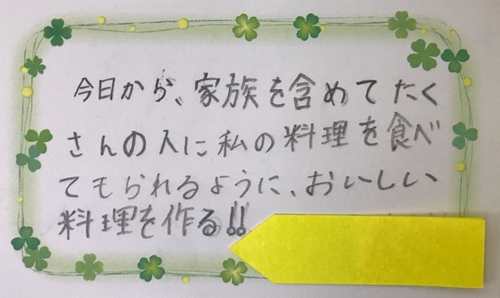 今日から、家族を含めてたく
さんの人に私の料理を食べ
てもられるように、おいしい
料理を作る!!